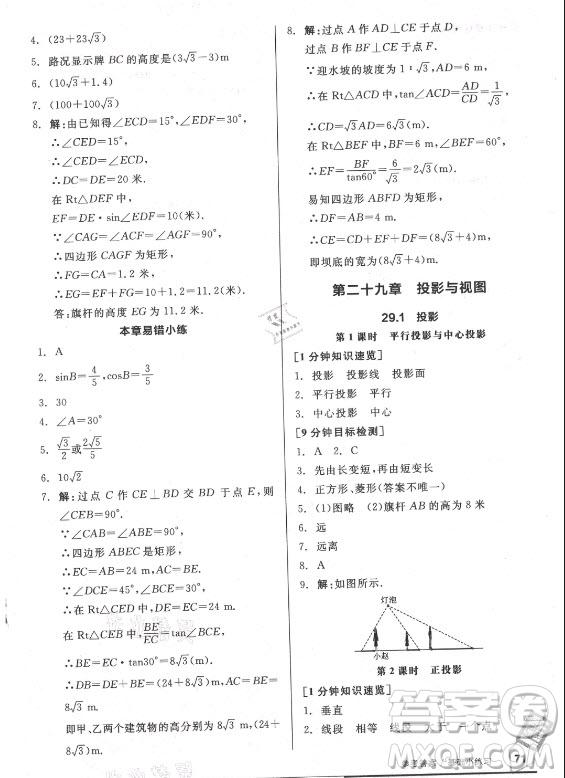 4. (23+23√3)
5. 路况显示牌 BC 的高度是(3√3-3)m
6. (10√3+1.4)
7. (100+100√3)
8. 解:由已知得∠ECD=15°,∠EDF=30°,
∴∠CED=15°,
∴∠CED=∠ECD,
∴DC=DE=20(米).
在 Rt△DEF 中,
EF=DE·sin∠EDF=10(米).
∵∠CAG=∠ACF=∠AGF=90°,
∴四边形 ACFG 为矩形,
∴FG=CA=1.2 米,
∴EG=EF+FG=10+1.2=11.2(米).
答:旗杆的高度为 11.2 米.
本章易错小练
1. A
2. sinB=4/5,cosB=3/5.
3. 30
4. ∠A=30°
5. √3/2或2√5/5
6. 10√2
7. 解:过点 C 作 CE⊥BD 交 BD 于点 E,则
∠CEB=90°.
∵∠CAB=∠ABE=90°,
∴四边形 ABEC 是矩形,
∴EC=AB=24 m,BE=AC.
∵∠DCE=45°,∠BCE=30°,
∴在 Rt△CED 中,DE=EC=24 m.
在 Rt△CEB 中,BE/EC=tan∠BCE,
∴BE=EC·tan30°=8√3(m),
∴BD=BE+DE=(24+8√3)m,
∴AC=BE=8√3 m,
即甲、乙两个建筑物的高分别为 8√3 m,(24+
8√3)m.
8. 解:过点 A 作 AD⊥CF 于点 D,
过点 B 作 BF⊥CF 于点 F.
∵迎水坡的坡度为 1∶√3,
∴在 Rt△ACD 中,tan∠ACD=AD/CD=1/√3,
∴CD=√3 AD=6√3(m).
∵在 Rt△BEF 中,∠BEF=60°,
∴EF=BF/tan60°=6/√3=2√3(m).
易知四边形 ABFD 为矩形,
∴DF=AB=4 m.
∴CE=CD+DF+EF=(8√3+4)m,
即坝底的宽为(8√3+4)m.
第二十九章 投影与视图
29.1 投影
第 1 课时 平行投影与中心投影
[1 分钟知识速览]
1. 投影 投影线 投影面
2. 平行投影 平行
3. 中心投影 中心
[9 分钟目标检测]
1. A 2. C
3. 先由长变短,再由短变长
4. 正方形、菱形(答案不唯一)
5. (1)图略 (2)旗杆 AB 的高为 8 米
6. 远
7. 远离
8. A
9. 解:如图所示.
灯泡
小赵
第 2 课时 正投影
[1 分钟知识速览]
1. 垂直
2. 线段 相等 线段
71